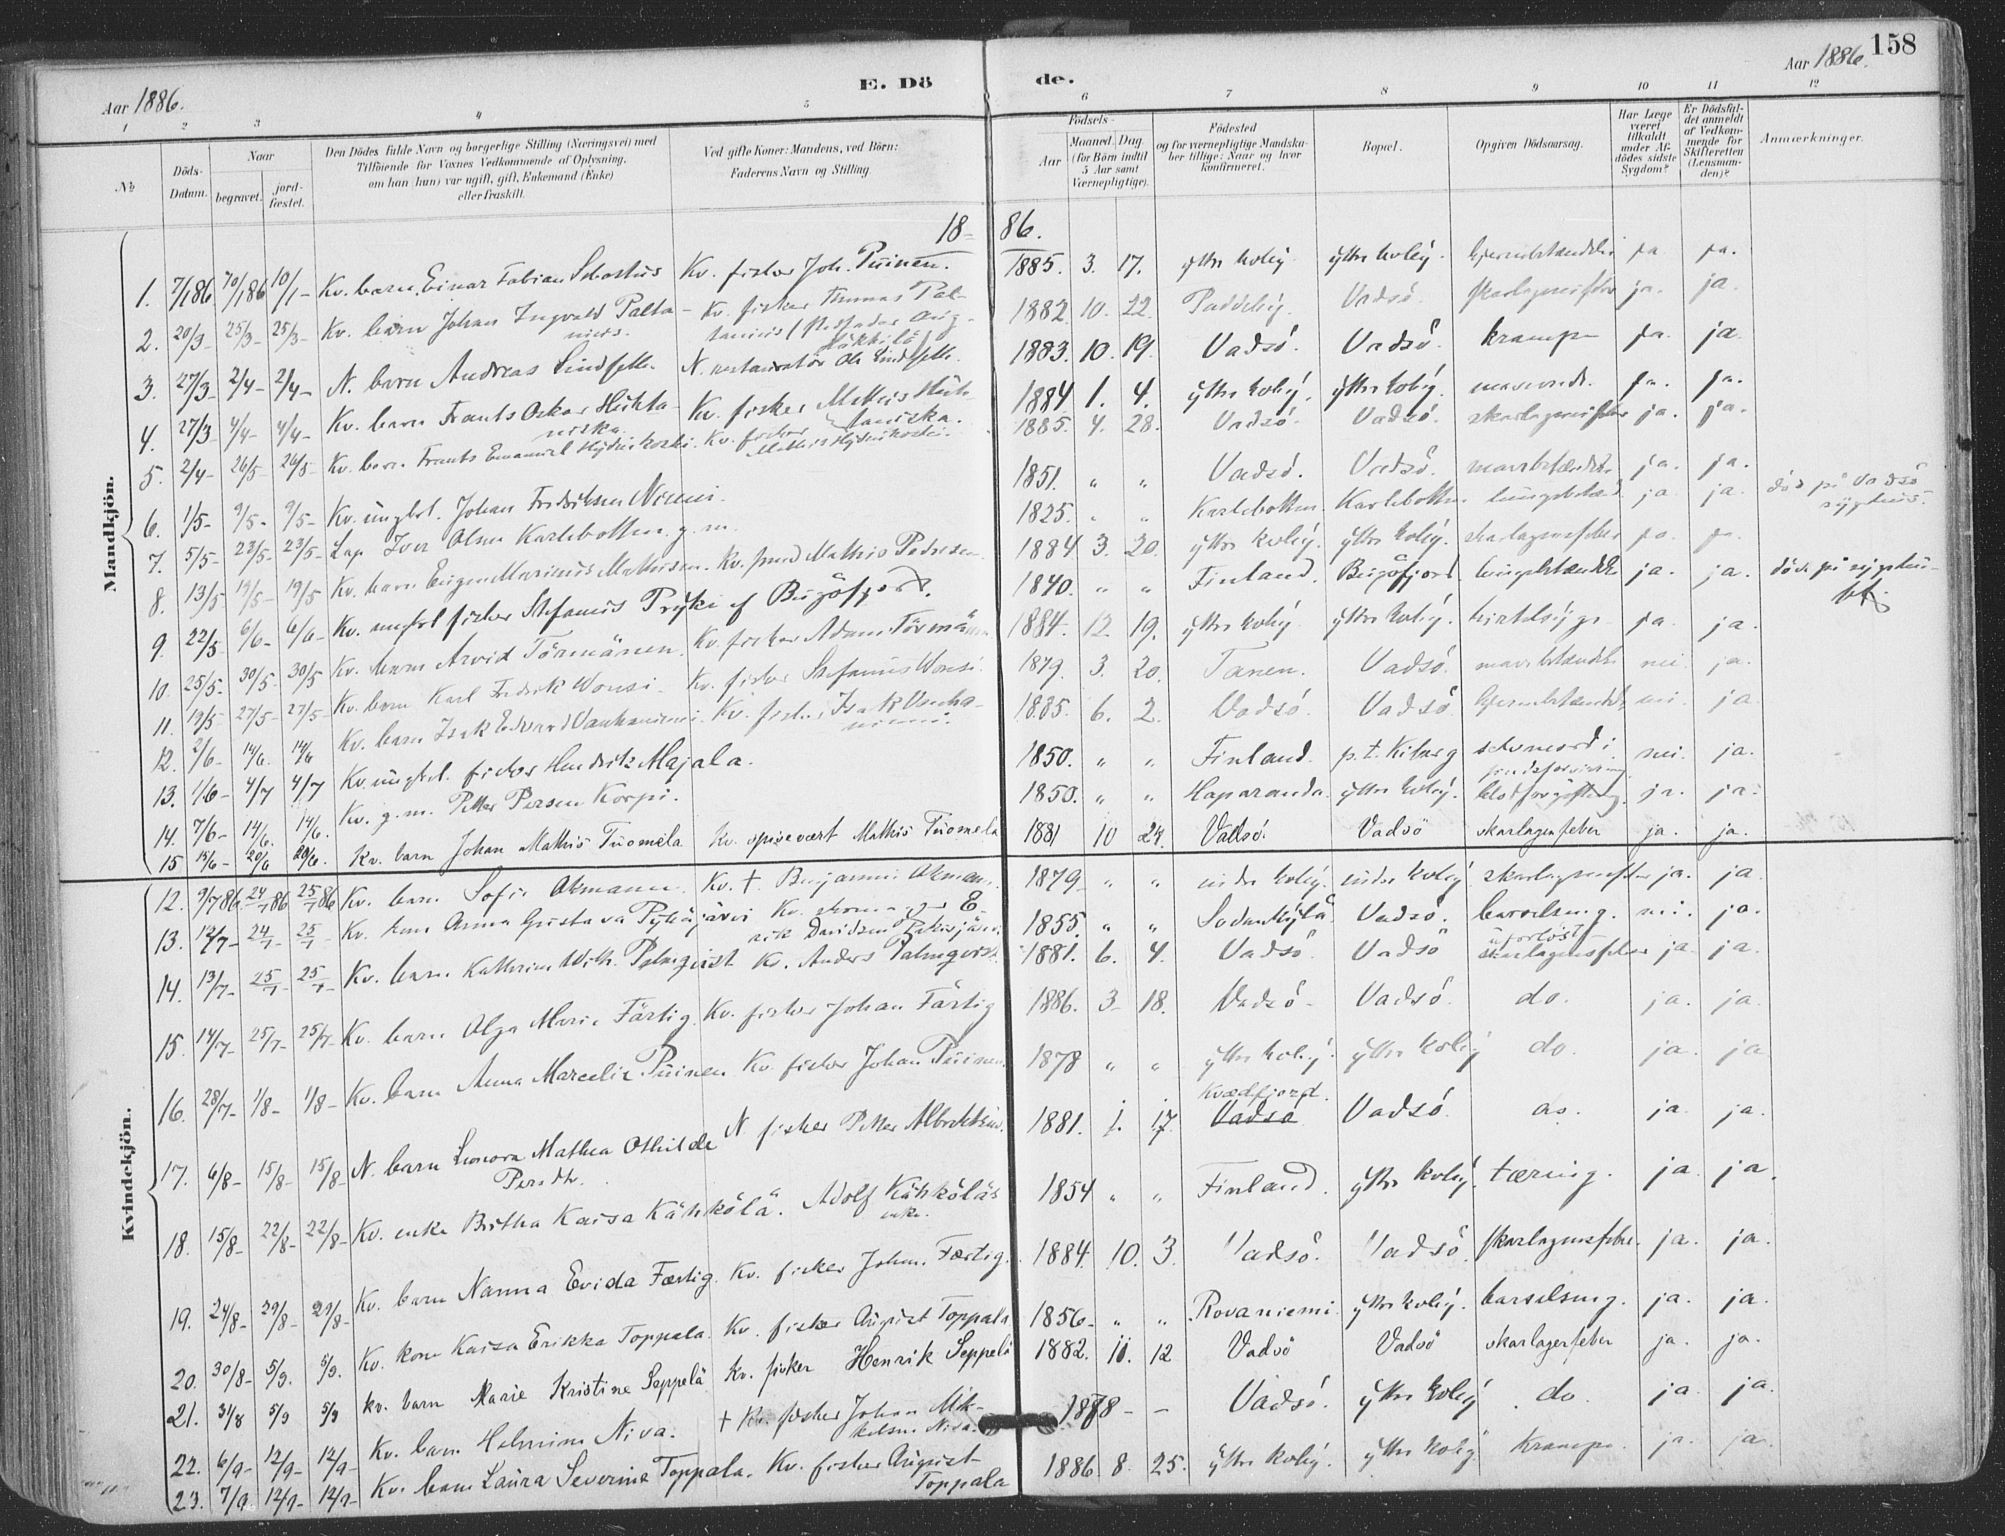 158
Aar 1886.
E. Dö
de.
Aar 1886.
1 2 3 4 5 6 7 8 9 10 11 12
No
Döds-Datum.
Naar
begravet.
jord-fæstet.
Den Dödes fulde Navn og borgerlige Stilling (Næringsvei) med
Tilföiende for Voxnes Vedkommende af Oplysning,
om han (hun) var ugift, gift, Enkemand (Enke)
eller fraskilt.
Ved gifte Koner: Mandens, ved Börn:
Faderens Navn og Stilling
Födsels-
Aar
Maaned. Dag.
(for Börn indtil
5 Aar samt
Værnepligtige).
Födested
og for værnepligtige Mandska-
ber tillige: Naar og hvor
konfirmeret.
Bopæl.
Opgiven Dödsaarsag.
Har Læge
været
tilkaldt
under Af-
dödes sidste
Sygdom?
Er Dödsfal-
det anmeldt
af Vedkom-
mende for
Skifteretten
(Lensman-
den)?
Anmærkninger.
18- 86.
Mandkjön.
1. 7/1 86 10/1 86 10/1- Kv. barn Einar Fabian Kv. fisker Joh. Puinen. 1885. 3. 17. ytre kvby. ytre kvby. ja ja.
2. 20/3- 25/3- 25/3- Kv. barn Johan Ingvald Palta- Kv. fisker Thomas Pal- 1882. 10. 22. Paddeby. Vadsö. skarlagensfeber ja. ja.
3. 27/3- 2/4- 2/4- N. barn Andreas N. restauratör Ole 1883. 10. 19. Vadsö. Vadsö. krampe ja. ja.
4. 27/3 4/4- 4/4- Kv. barn Frants Oskar Huhta- Kv. fisker Mathis Huh- 1884 1. 4. ytre kvby. ytre kvby. ja. ja.
niska. taniska.
5. 2/4- 26/5- 26/5- Kv. barn Frants Emanuel Kv. fisker Mathis 1885. 4. 28. Vadsö. Vadsö. skarlagensfeber ja. ja.
6. 1/5- 9/5- 9/5- Kv. ungkl. Johan Fredriksen Niemi. 1851. " " Vadsö. Vadsö. ja. ja.
7. 5/5- 23/5- 23/5- Lap Iver Olsen Karlebotten g. m. 1825. " " Karlebotten Karlebotten. ja ja. död på Vadsö sygehus.
8. 13/5 19/5- 19/5 Kv. barn Eugen Marinius Mathisen. Kv. Mathis Pedersen 1884 3. 20. ytre kvby. ytre kvby. skarlagensfeber ja. ja.
9. 22/5 6/6- 6/6- Kv. ungkl fisker Stefanus Pryki af Bugöfjord. 1840. " " Finland. Bugöfjord. ja. ja. död på sygehu-
set.
10. 25/5- 30/5- 30/5 Kv. barn Arvid Törmänen. Kv. fisker Adam Törmänen 1884. 12. 19. ytre kvby ytre kvby. ja. ja.
11. 19/5- 27/5- 27/5- Kv. barn Karl Fredrik Wonsi. Kv. fisker Stefanus Wonsi. 1879. 3. 20. Tanen. Vadsö. nei. ja.
12. 2/6- 14/6. 14/6 Kv. barn Isak Edvard Vanhaniemi. Kv. fisker Isak Vanha- 1885. 6. 2. Vadsö. Vadsö nei. ja
niemi.
13. 1/6- 4/7 4/7 Kv. ungkl. fisker Hendrik Majala. 1850. " " Finland. p. t. Kiberg selvmord i nei. ja.
14. 7/6- 14/6. 14/6. Kv. g. m. Petter Persen Korpi. 1850. " " Haparanda. ytre kvby. blodforgiftning. ja. ja.
15 15/6- 20/6 20/6. Kv. barn Johan Mathis Tuomela Kv. spisevært Mathis Tuomela 1881 10 24. Vadsö. Vadsö skarlagenfeber ja. ja.
Kvindekjön.
12. 9/7 86 24/7 86 25/7 86 Kv. barn Sofie Akmann. Kv. † Benjamin Akman. 1879 " " indre kvby. indre kvby skarlagensfeber ja. ja.
13. 12/7- 24/7- 25/7- Kv. kone Anna Gustava Pyhäjärvi Kv. E- 1855. " " Sodankylä Vadsö. barselseng. nei. ja.
rik Davidsen uforlöst
14. 13/7- 25/7- 25/7- Kv. barn Kathrine Wilh. Palmqvist Kv. Anders Palmqvist. 1881. 6. 4. Vadsö Vadsö skarlagensfeber ja ja.
15. 14/7- 25/7- 25/7- Kv. barn Olga Marie Färtig. Kv. fisker Johan Färtig 1886. 3- 18. Vadsö- Vadsö. do. ja. ja.
16. 28/7- 1/8- 1/8- Kv. barn Anna Marcelie Puinen Kv. fisker Johan Puinen 1878 " " ytre kvby. ytre kvby do. ja. ja
Kvædfjord.
17. 6/8- 15/8- 15/8- N. barn Leonora Mathea Othilde N. fisker Petter Albrektsen. 1881. 1. 17. Vadsö Vadsö. do. ja. ja.
Persdtr.
18. 15/8- 22/8- 22/8- Kv. enke Britha Kaisa Kähkölä. Adolf Kähköläs 1854 " " Finland. ytre kvby. tæring. ja. ja.
enke.
19. 24/8- 29/8- 29/8- Kv. barn Nanna Evida Færtig. Kv. fisker Johan Færtig. 1884. 10. 3. Vadsö. Vadsö. skarlagensfeber. ja. ja.
20. 30/8- 5/9. 5/9. Kv. kone Kaisa Erikka Toppala. Kv. fisker August Toppala 1856- " " Rovaniemi. ytre kvby. barselseng. ja. ja.
21. 31/8 5/9 5/9 Kv. barn Marie Kristine Seppelä Kv. fisker Henrik Seppelä 1882. 11. 12 Vadsö Vadsö skarlagenfeber ja. ja.
22. 6/9- 12/9- 12/9- Kv. barn Helmine Niva. † Kv. fisker Johan Mik- 1878- - Vadsö. ytre kvby. do. ja ja.
kelsen Niva.
23. 7/9 12/9- 12/9- Kv. barn Laura Severine Toppala. Kv. fisker August 1886. 8. 25. ytre kvby. ytre kvby Krampe. ja. ja.
Toppala